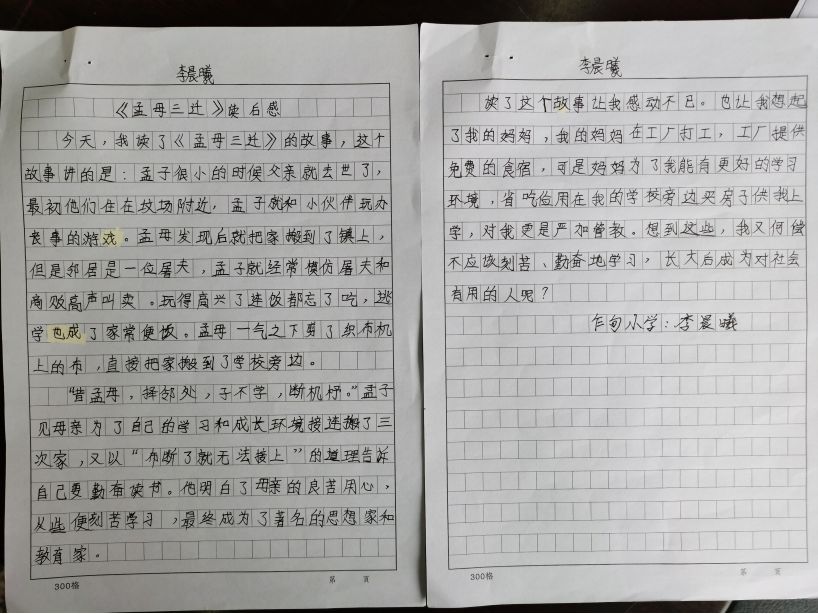 李晨曦
《孟母三迁》读后感
今天，我读了《孟母三迁》的故事，这个
故事讲的是：孟子很小的时候父亲就去世了，
最初他们住在坟场附近，孟子就和小伙伴玩办
丧事的游戏。孟母发现后就把家搬到了镇上，
但是邻居是一位屠夫，孟子就经常模仿屠夫和
商贩高声叫卖。玩得高兴了连饭都忘了吃，逃
学也成了家常便饭。孟母一气之下剪了织布机
上的布，直接把家搬到了学校旁边。
“昔孟母，择邻处，子不学，断机杼。”孟子
见母亲为了自己的学习和成长环境接连搬了三
次家，又以“布断了就无法接上”的道理告诉
自己要勤奋读书。他明白了母亲的良苦用心，
从此便刻苦学习，最终成为了著名的思想家和
教育家。
300格
第 页
李晨曦
读了这个故事让我感动不已。也让我想起
了我的妈妈，我的妈妈在工厂打工，工厂提供
免费的食宿，可是妈妈为了我能有更好的学习
环境，省吃俭用在我的学校旁边买房子供我上
学，对我更是严加管教。想到这些，我又何偿
不应该刻苦、勤奋地学习，长大后成为对社会
有用的人呢？
乍甸小学：李晨曦
300格
第 页